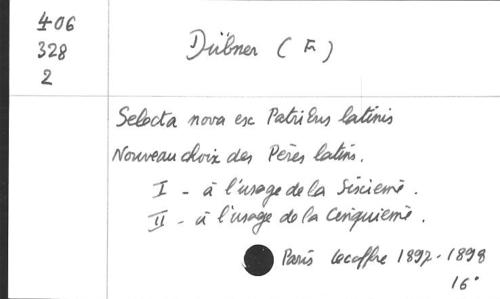 406
328
2
Dübner (F)
Selecta nova ex Patribus latinis
Nouveau choix des Pères latins.
I - à l'usage de la Sixième.
II - à l'usage de la Cinquième.
Paris Lecoffre 1897-1898
16°